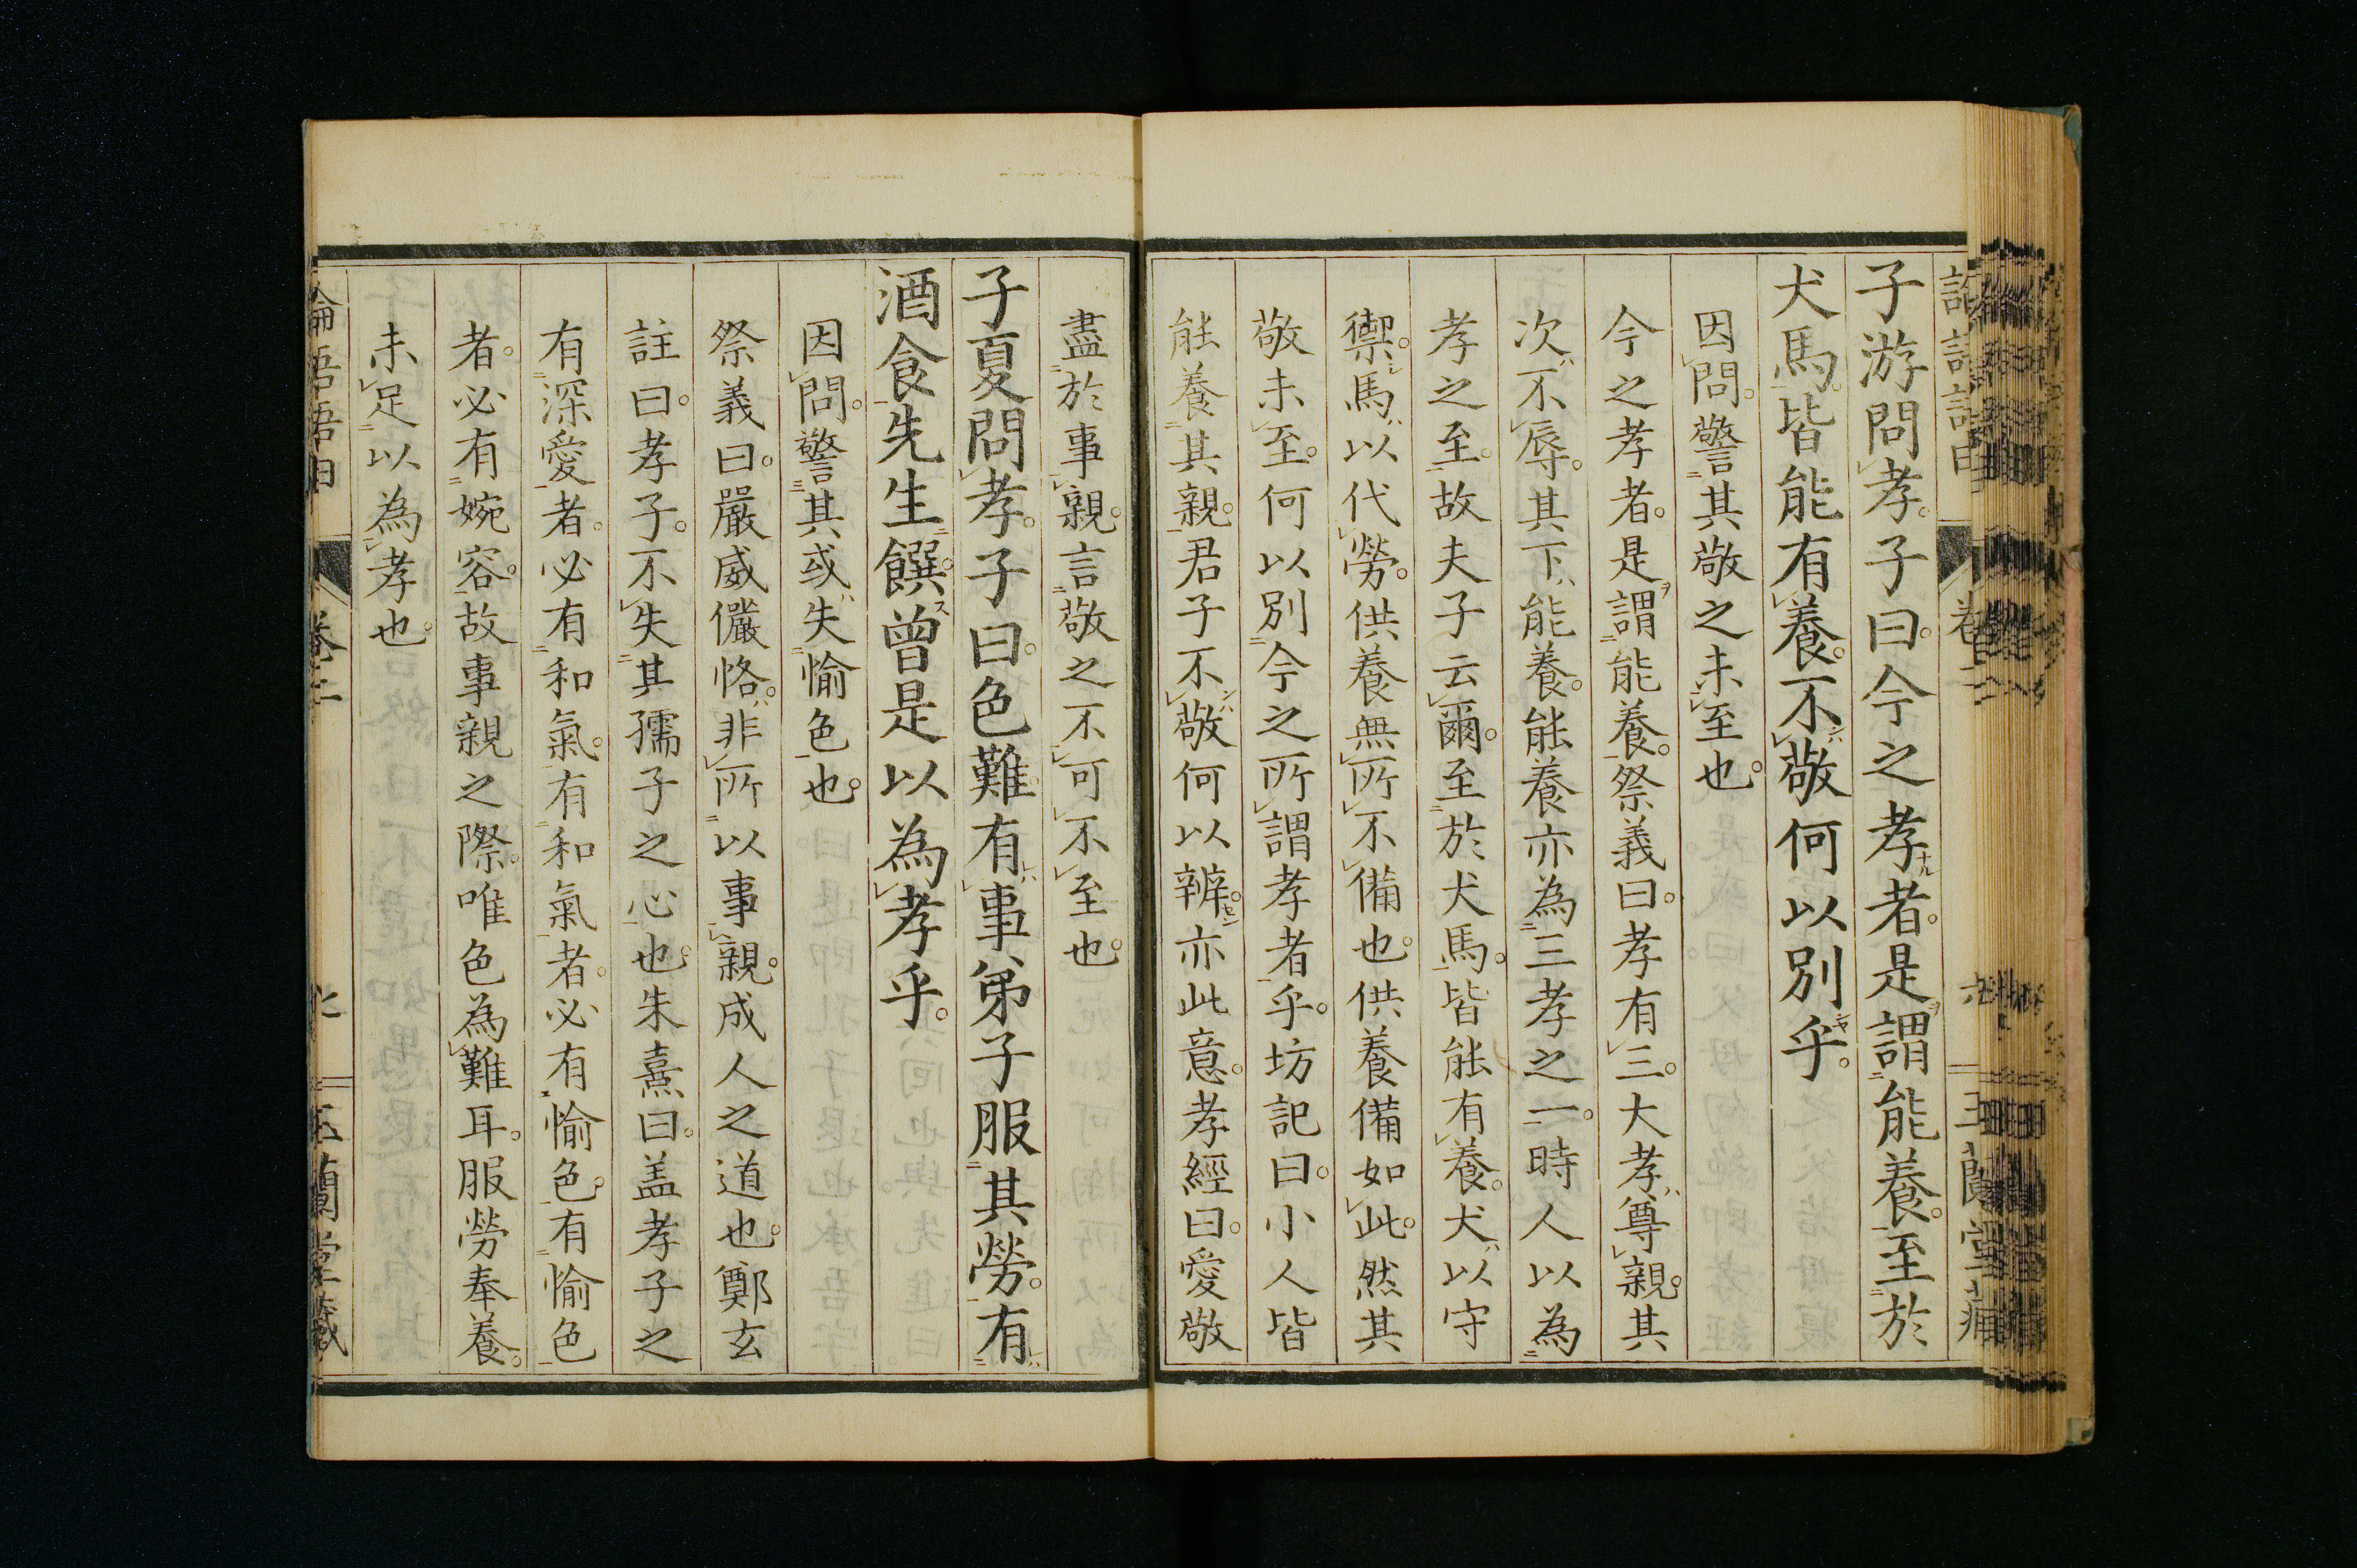 子游問孝。子曰。今之孝者。是謂能養。至於
犬馬。皆能有養。不敬何以別乎。
因問。警其敬之未至也。
今之孝者。是謂能養。祭義曰。孝有三。大孝尊親。其
次不辱。其下能養。能養亦為三孝之一。時人以為
孝之至。故夫子云爾。至於犬馬。皆能有養。犬以守
禦。馬以代勞。供養無所不備也。供養備如此。然其
敬未至。何以別今之所謂孝者乎。坊記曰。小人皆
能養其親。君子不敬何以辨。亦此意。孝經曰。愛敬
盡於事親。言敬之不可不至也。
子夏問孝。子曰。色難。有事弟子服其勞。有
酒食先生饌。曾是以為孝乎。
因問。警其或失愉色也。
祭義曰。嚴威儼恪。非所以事親。成人之道也。鄭玄
註曰。孝子。不失其孺子之心也。朱熹曰。盖孝子之
有深愛者。必有和氣。有和氣者。必有愉色。有愉色
者。必有婉容。故事親之際。唯色為難耳。服勞奉養。
未足以為孝也。
論語語由 卷二 玉蘭堂藏